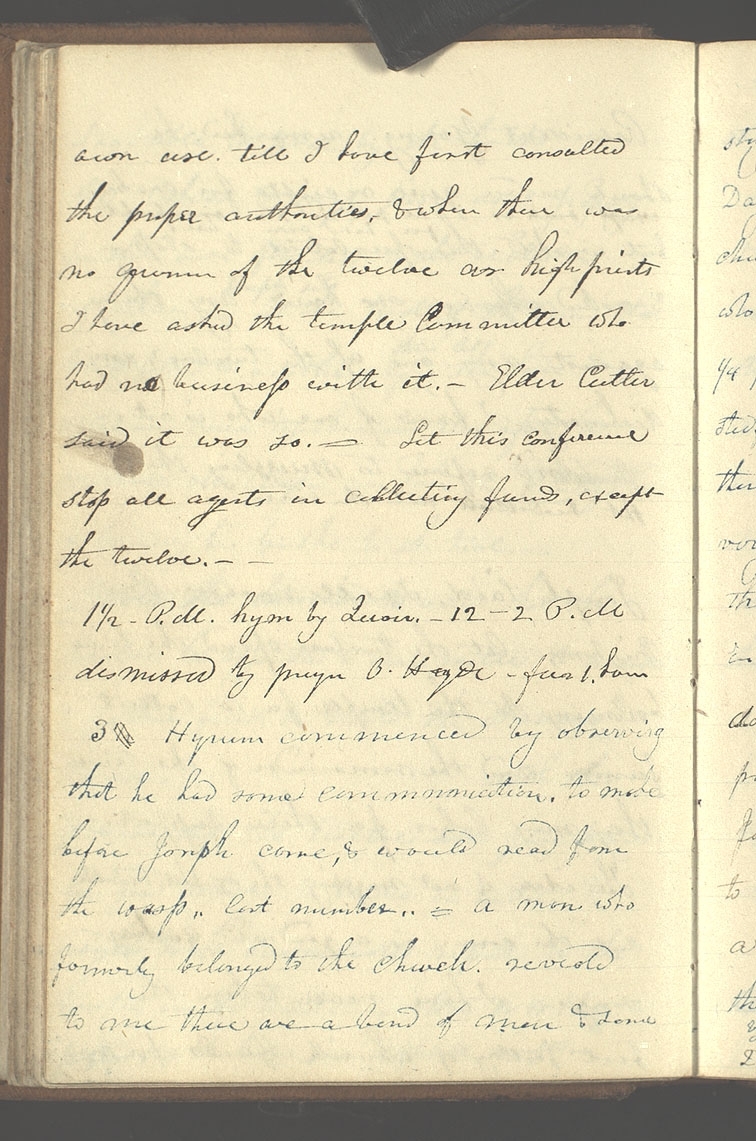 own use. till I have first consulted
the proper authorities, & when there was
no quorum of the twelve or high priests
I have asked the temple Committee who
had no business with it. — Elder Cutler
said it was so. — Let this conference
stop all agents in collecting funds, except
the twelve. — —
1½ - P.M. hymn by Quoir. — 12 — 2 P.M
dismissed by prayer O. Hyde - for 1. hour
3 Hyrum commenced by observing
that he had some communication. to make
before Joseph come, & would read from
the wasp,. last number.. = a man who
formerly belonged to the church. revealed
to me there are a band of men & some